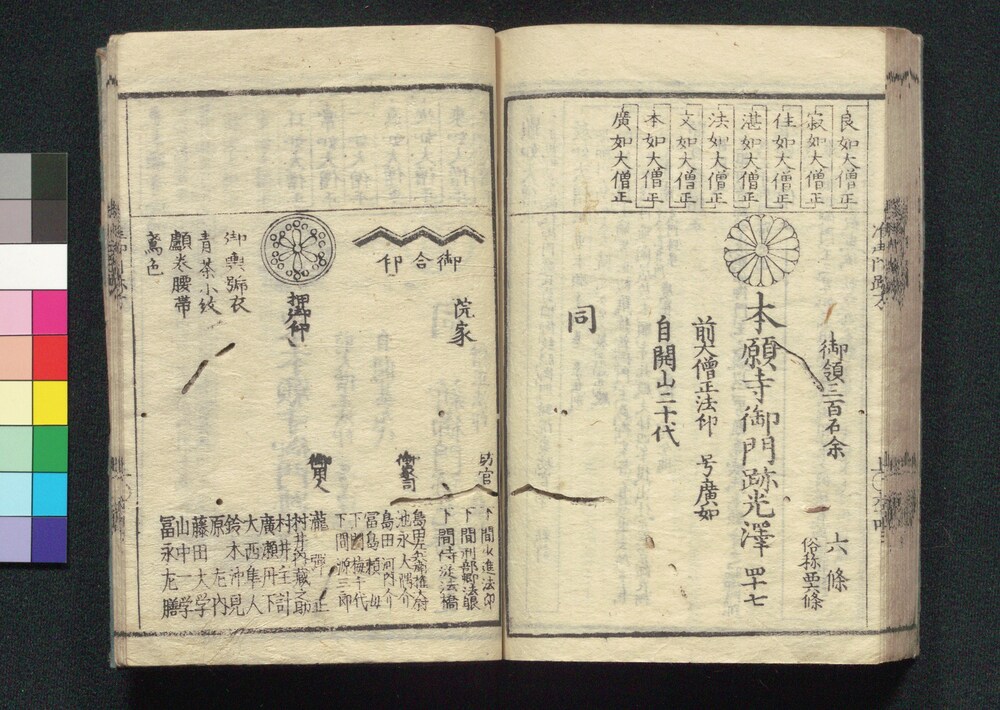 良如大僧正
寂如大僧正
住如大僧正
湛如大僧正
法如大僧正
文如大僧正
本如大僧正
廣如大僧正
御領三百石余
六條
俗称西六條
本願寺御門跡光澤 四十七
前大僧正法印 号廣如
自開山二十代
同
院家
御合印
押御印
御輿舁衣
青茶小紋
顱巻腰帯
鳶色
坊官
下間少進法印
下間刑部卿法眼
下間侍従法橋
御家司
池永大隅介
島田河内介
冨島頼母
下間梅千代
下間源三郎
御用人
瀧彈正
村井内蔵之助
村井主計
廣瀬丹下
大西隼人
鈴木沖見
原左内
藤田大学
山中一学
冨永左膳